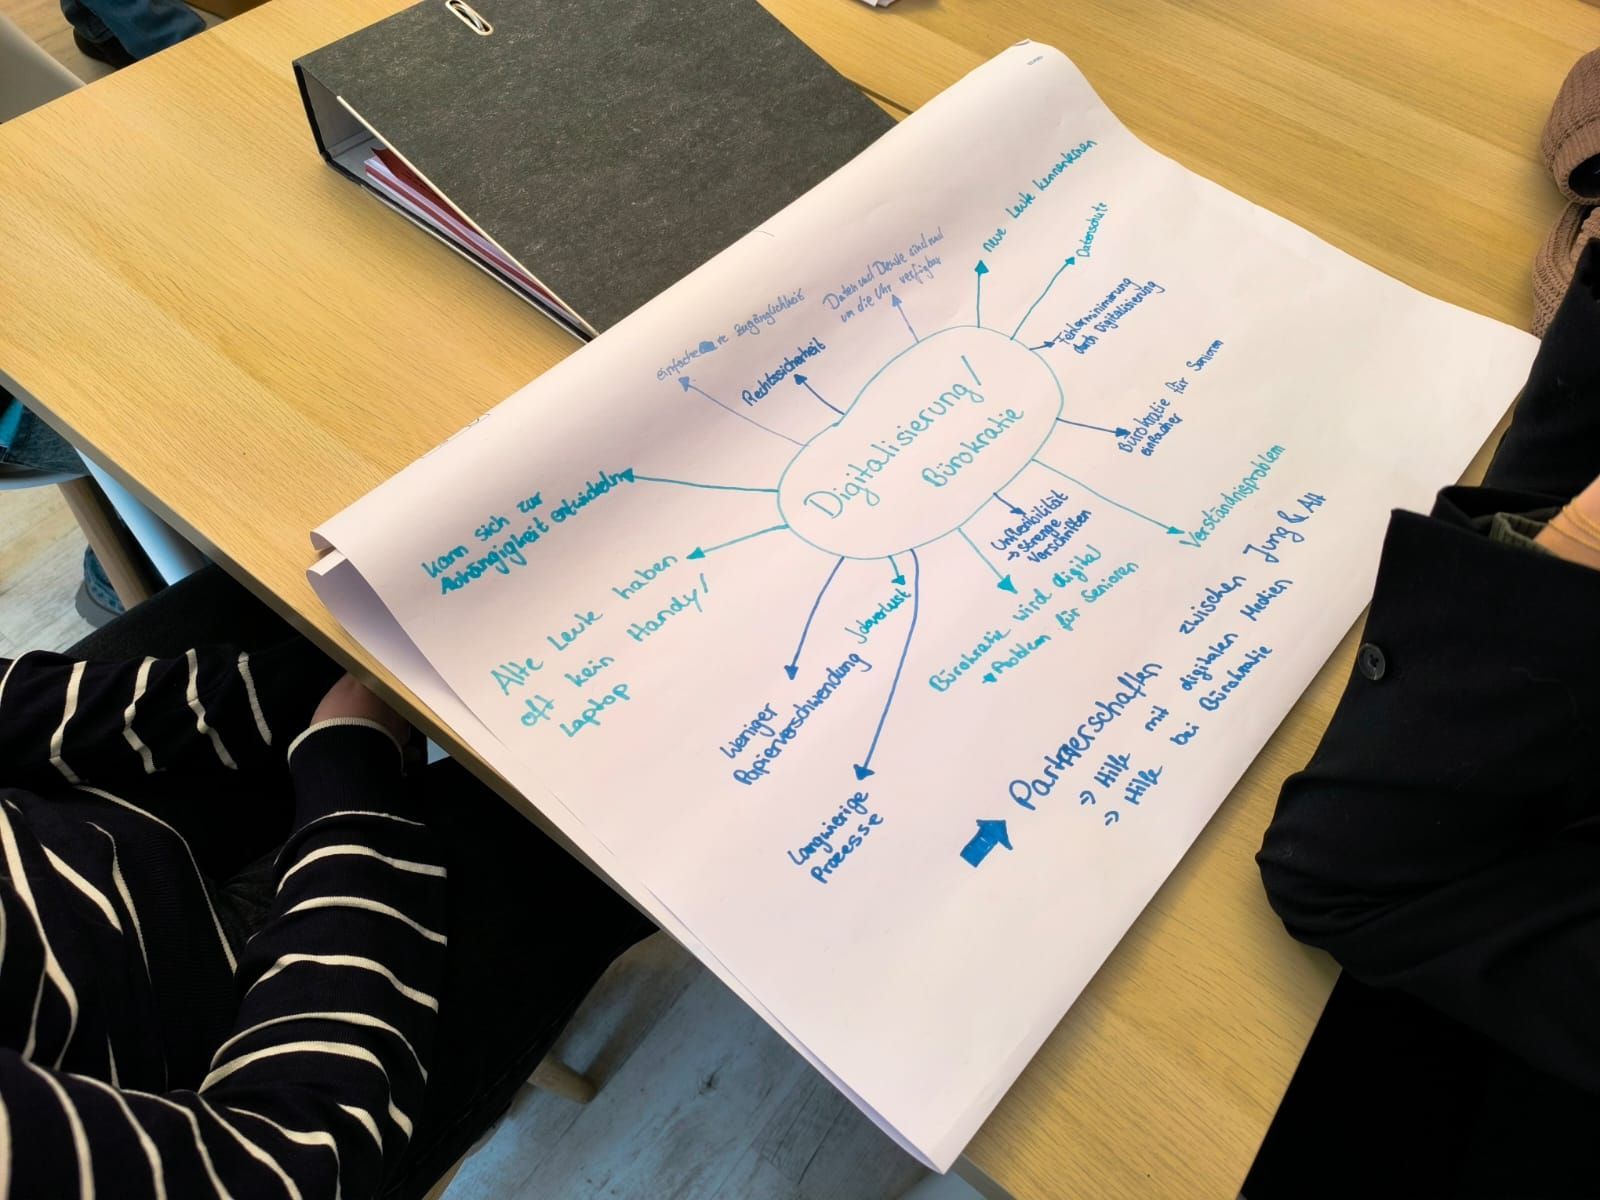 Digitalisierung/
Bürokratie
neue Leute kennenlernen
Datenschutz
Fehlerminimierung
durch Digitalisierung
Bürokratie für Senioren
einfacher
Verständnisproblem
Unflexibilität
→ strenge
Vorschriften
Bürokratie wird digital
→ Problem für Senioren
Jobverlust
Langwierige
Prozesse
Weniger
Papierverschwendung
Alte Leute haben
oft kein Handy/
Laptop
kann sich zur
Abhängigkeit entwickeln
einfachere Zugänglichkeit
Rechtssicherheit
Daten und Dienste sind rund
um die Uhr verfügbar
Partnerschaften zwischen Jung & Alt
=> Hilfe mit digitalen Medien
=> Hilfe bei Bürokratie